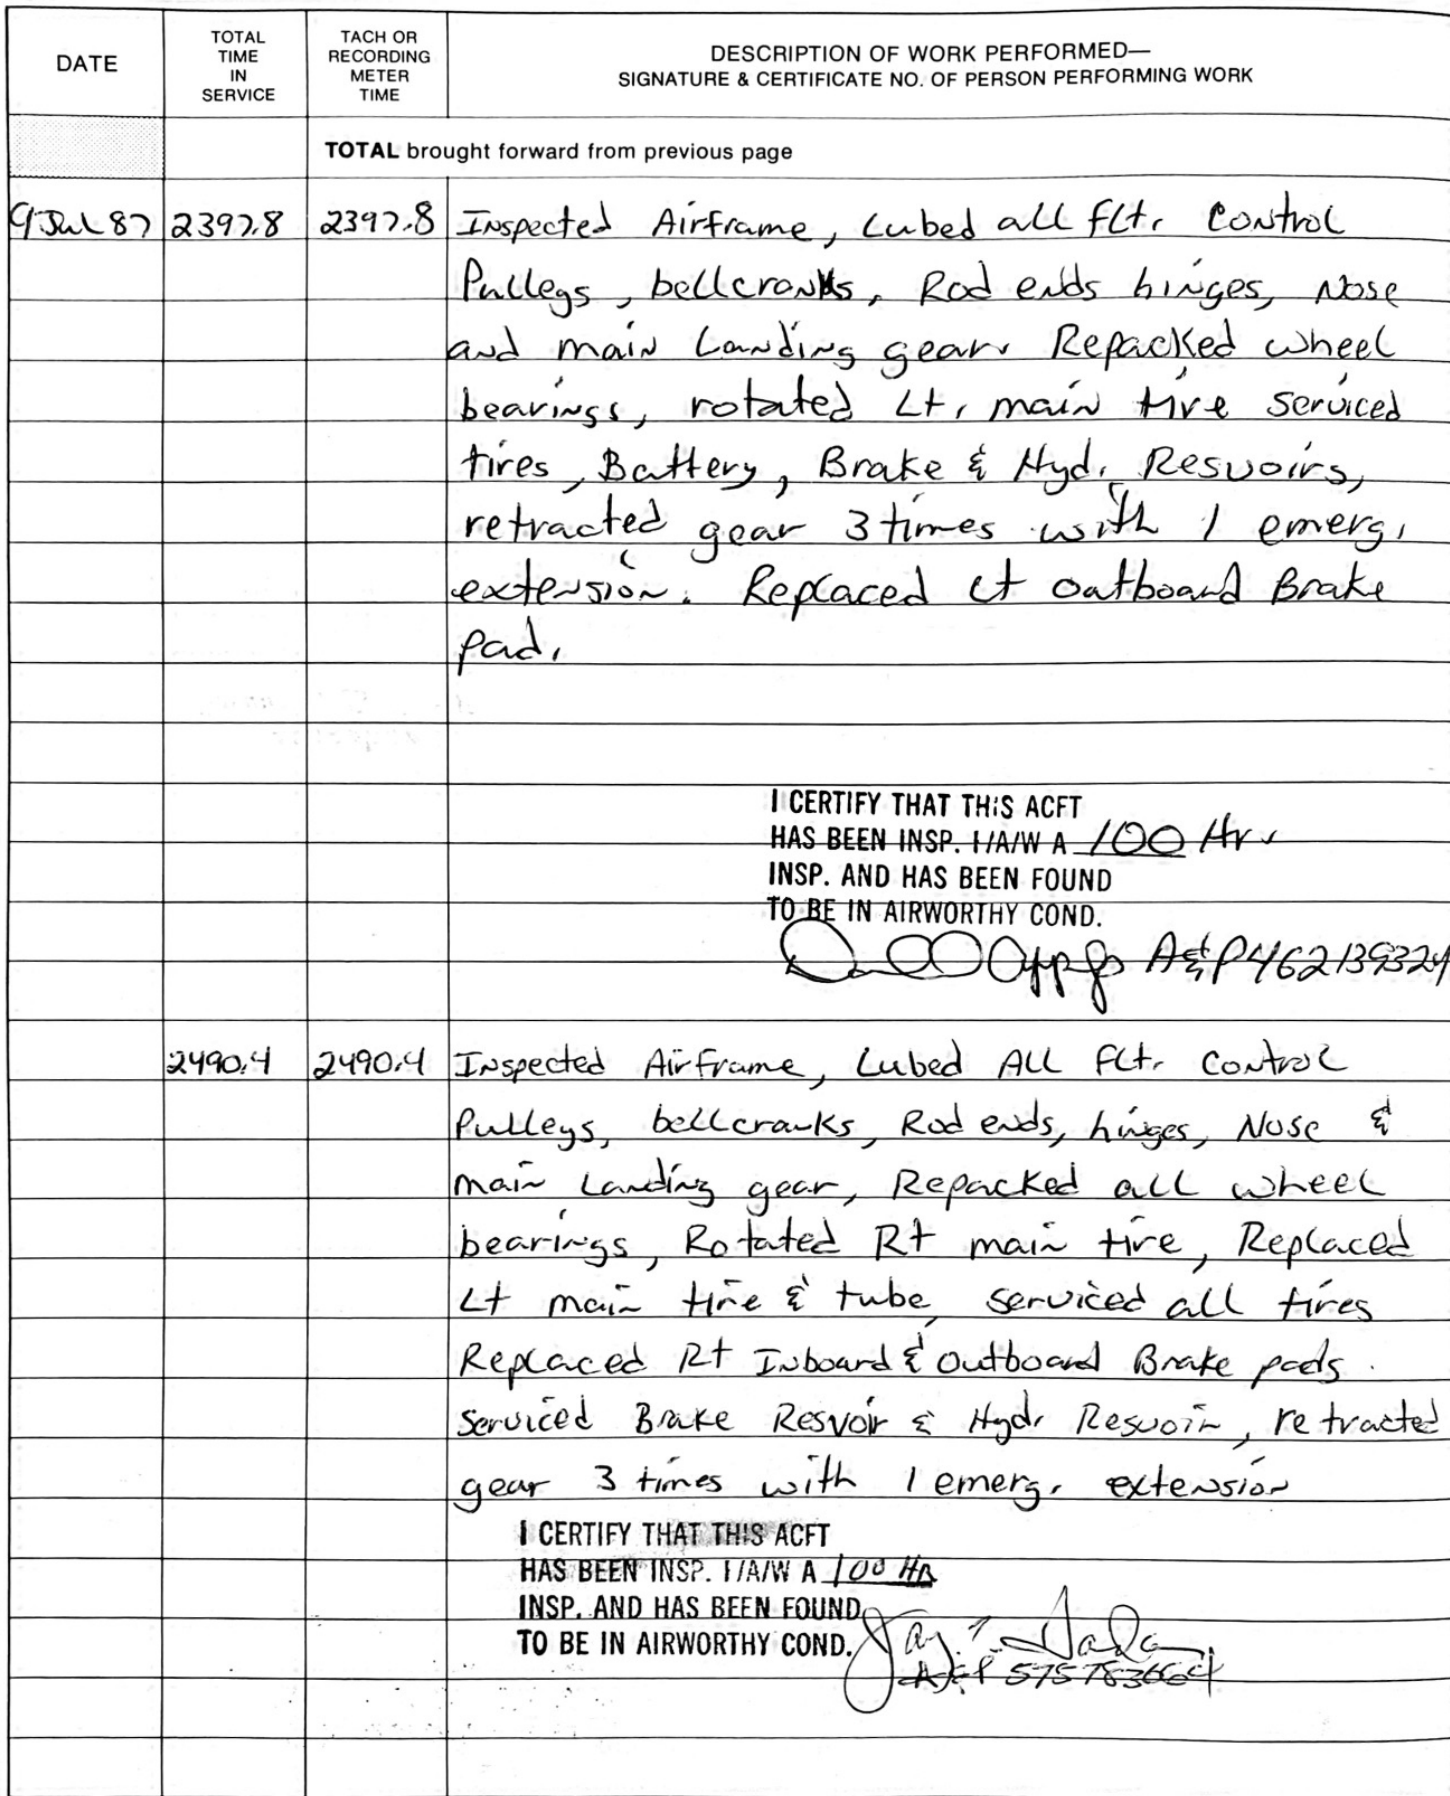 DATE
TOTAL TIME IN SERVICE
TACH OR RECORDING METER TIME
DESCRIPTION OF WORK PERFORMED—
SIGNATURE & CERTIFICATE NO. OF PERSON PERFORMING WORK
TOTAL brought forward from previous page
9 Jul 87 2397.8 2397.8 Inspected Airframe, Lubed all flt. Control
Pulleys, bellcranks, Rod ends hinges, Nose
and main Landing gear. Repacked wheel
bearings, rotated Lt. main tire, serviced
tires, Battery, Brake & Hyd. Resvoirs,
retracted gear 3 times with 1 emerg.
extension. Replaced Lt Outboard Brake
pad.
I CERTIFY THAT THIS ACFT
HAS BEEN INSP. I/A/W A 100 Hr.
INSP. AND HAS BEEN FOUND
TO BE IN AIRWORTHY COND.
A&P 462139324
2490.4 2490.4 Inspected Airframe, Lubed ALL Flt. Control
Pulleys, bellcranks, Rod ends, hinges, Nose &
main Landing gear, Repacked all wheel
bearings, Rotated Rt main tire, Replaced
Lt main tire & tube, serviced all tires
Replaced Rt Inboard & Outboard Brake pads.
Serviced Brake Resvoir & Hyd. Resvoir, retracted
gear 3 times with 1 emerg. extension
I CERTIFY THAT THIS ACFT
HAS BEEN INSP. I/A/W A 100 HR
INSP. AND HAS BEEN FOUND
TO BE IN AIRWORTHY COND.
A&P